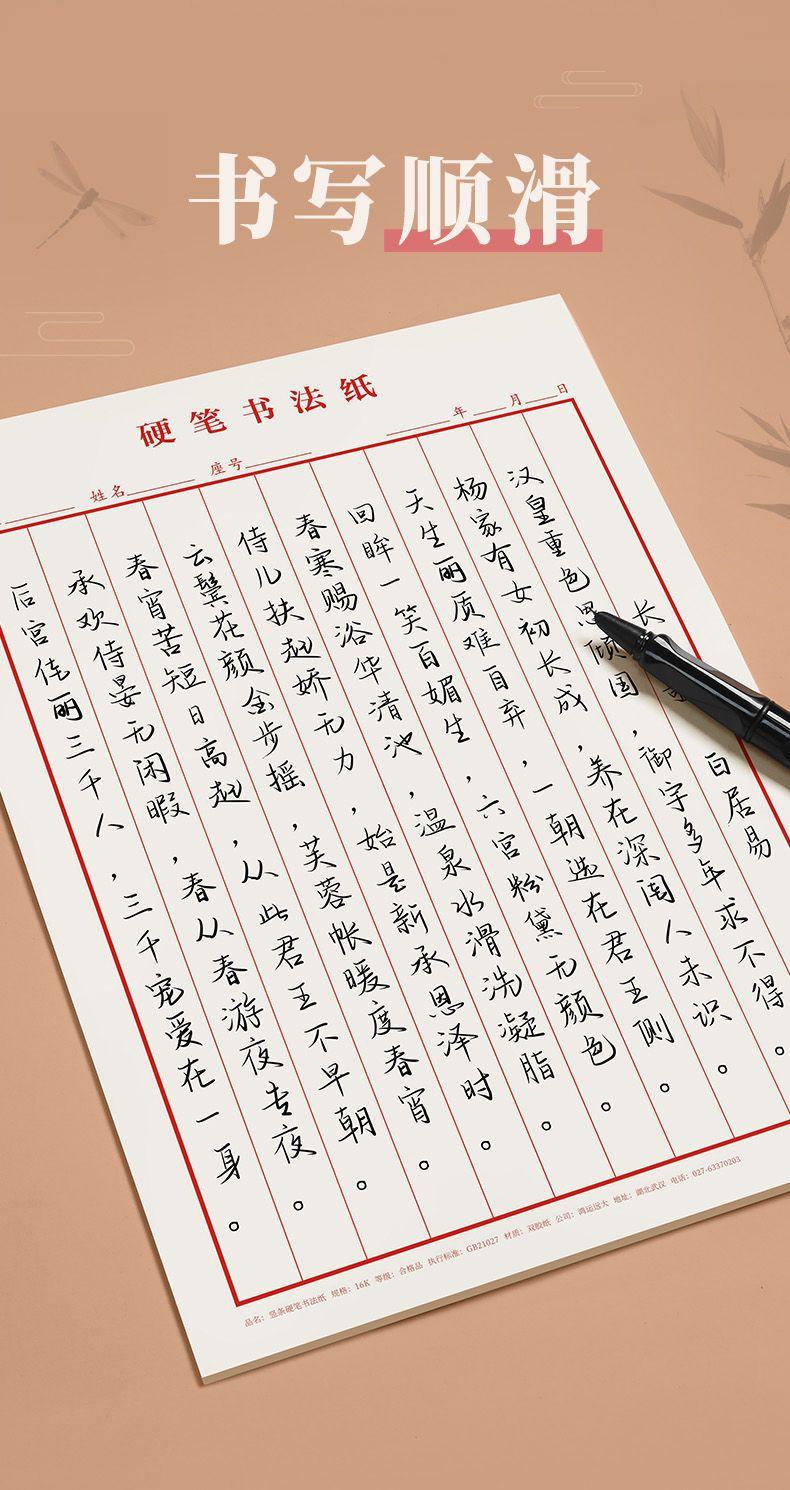 书写顺滑
硬笔书法纸
姓名 座号 年 月 日
长 白居易
汉皇重色思倾国，御宇多年求不得。
杨家有女初长成，养在深闺人未识。
天生丽质难自弃，一朝选在君王侧。
回眸一笑百媚生，六宫粉黛无颜色。
春寒赐浴华清池，温泉水滑洗凝脂。
侍儿扶起娇无力，始是新承恩泽时。
云鬓花颜金步摇，芙蓉帐暖度春宵。
春宵苦短日高起，从此君王不早朝。
承欢侍宴无闲暇，春从春游夜专夜。
后宫佳丽三千人，三千宠爱在一身。
品名：竖条硬笔书法纸 规格：16K 等级：合格品 执行标准：GB21027 材质：双胶纸 公司：鸿运远大 地址：湖北武汉 电话：027-63370203